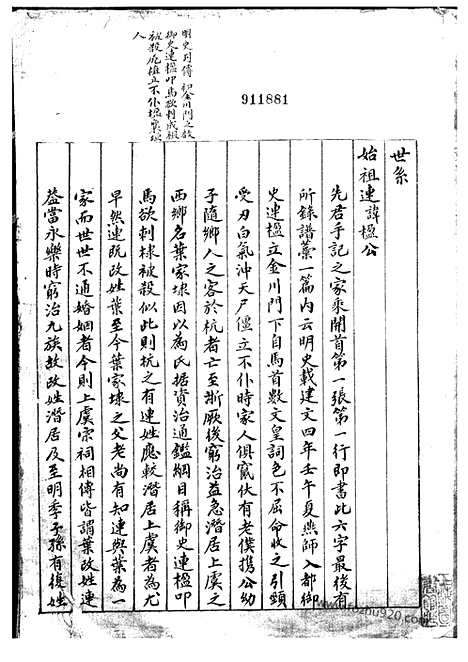 明史列傳 初金川門之啟
御史連楹叩馬欲刺成祖
被殺屍植立不仆楹襄垣
人
911881
世系
始祖連諱楹公
先君手記之家乘開首第一張第一行即書此六字最後有
所錄譜藁一篇內云明史載建文四年壬午夏燕師入都御
史連楹立金川門下自馬首數文皇詞色不屈命收之引頸
受刃白氣沖天尸僵立不仆時家人俱竄伏有老僕攜公幼
子隨鄉人之客於杭者亡至浙厥後窮治益急潛居上虞之
西鄉名葉家埭因以為氏據資治通鑑綱目稱御史連楹叩
馬欲刺棣被殺似此則杭之有連姓應較潛居上虞者為尤
早然連既改姓葉至今葉家埭之父老尚有知連與葉為一
家而世世不通婚姻者今則上虞宗祠相傳皆謂葉改姓連
葢當永樂時窮治九族故改姓潛居及至明季子孫有復姓
www.fozhu920.com